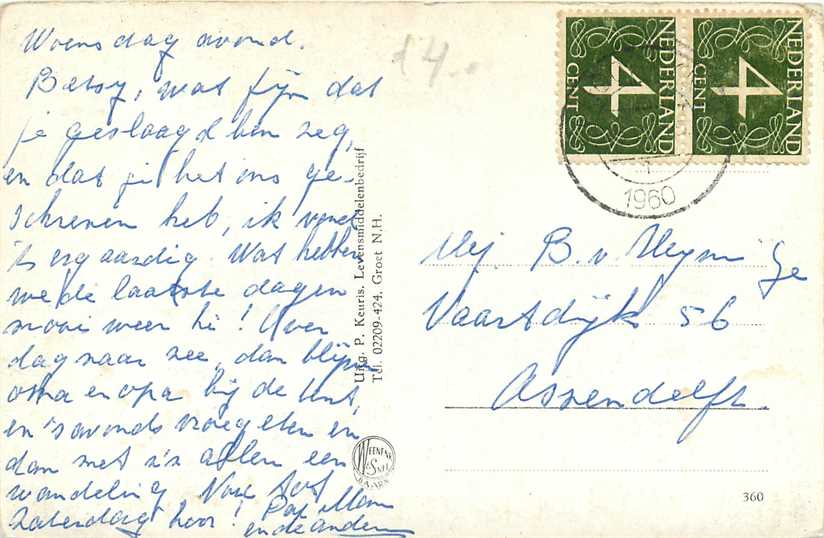 Woensdag avond.
Betsy, wat fijn dat
je geslaagd ben zeg,
en dat jij het ons ge-
schreven heb, ik vond
't erg aardig. Wat hebben
we de laatste dagen
mooi weer hè! Over
dag naar zee, dan blijven
oma en opa bij de tent,
en 's avonds vroeg eten en
dan met z'n allen een
wandeling. Nou tot
Zaterdag hoor! Pap Mam
en de anderen
14.-
Uitg. P. Keuris. Levensmiddelenbedrijf
Tel. 02209-424, Groet N.H.
WEENENK
& SNEL
BAARN
NEDERLAND
4
CENT
NEDERLAND
4
CENT
1960
Mej. B. v.
Vaartdijk 56
Assendelft.
360